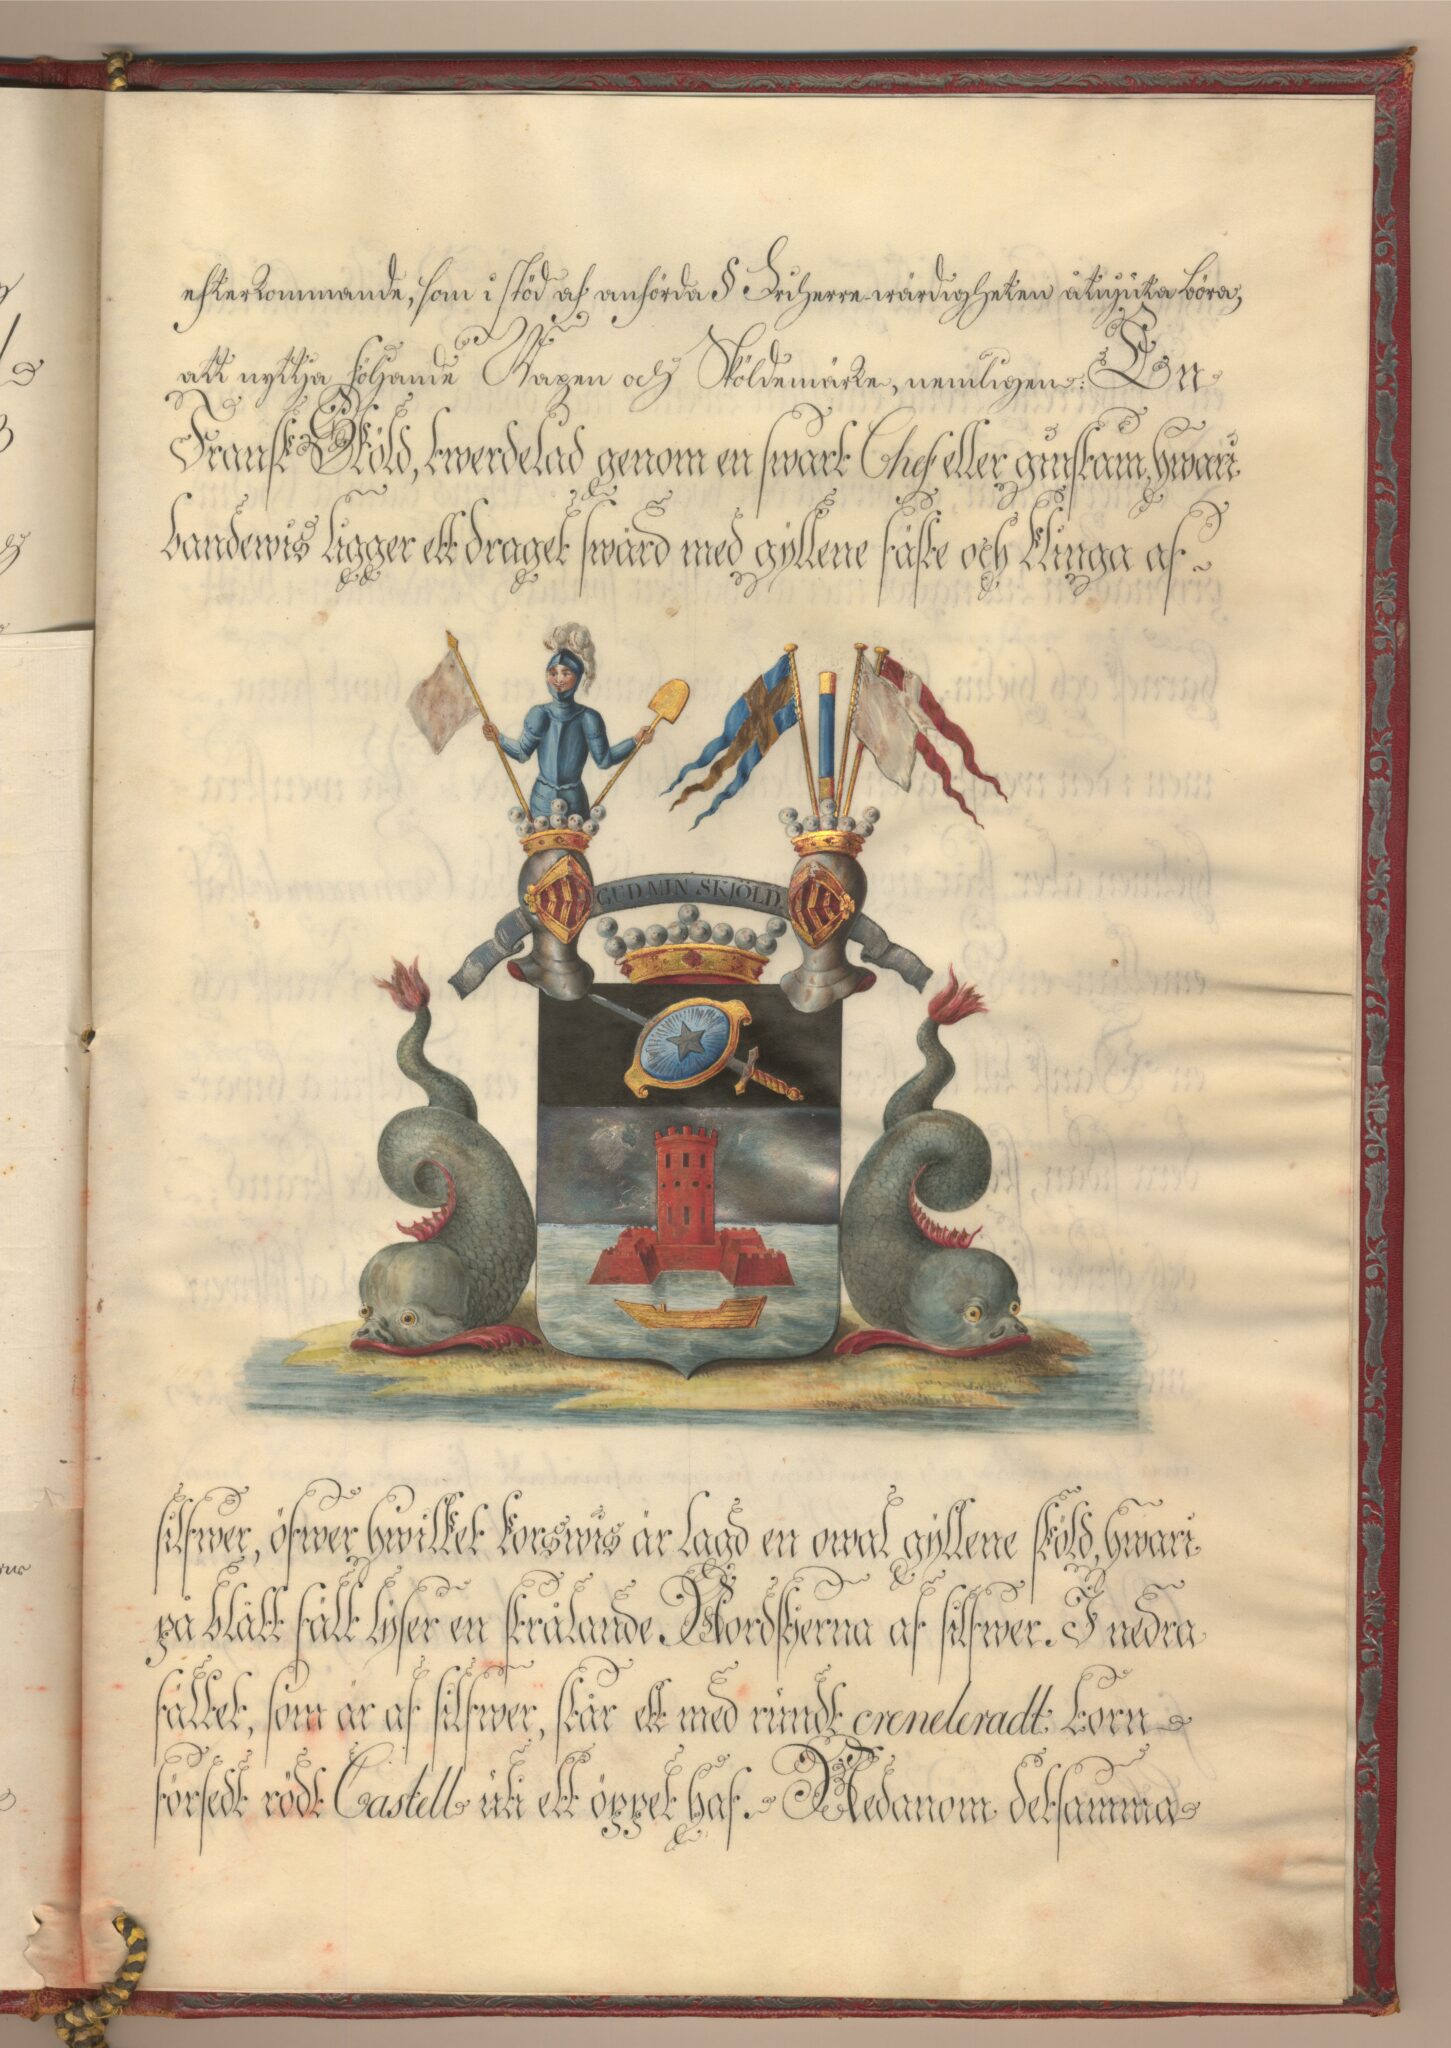 efterkommande, som i stöd af anförda § Friherre-wärdigheten åtnjuta böra,
att nyttja följande Wapen och Sköldemärke, nemligen: En
Fransk Sköld, twerdelad genom en swart Chef eller ginstam, hwari
bandewis ligger ett draget swärd med gyllene fäste och klinga af
GUD MIN SKJÖLD.
silfwer, öfwer hwilket korswis är lagd en owal gyllene sköld, hwari
på blått fält lyser en strålande Nordstjerna af silfwer. I nedra
fältet, som är af silfwer, står ett med rundt creneleradt torn
försedt rödt Castell uti ett öppet haf. Nedanom detsamma